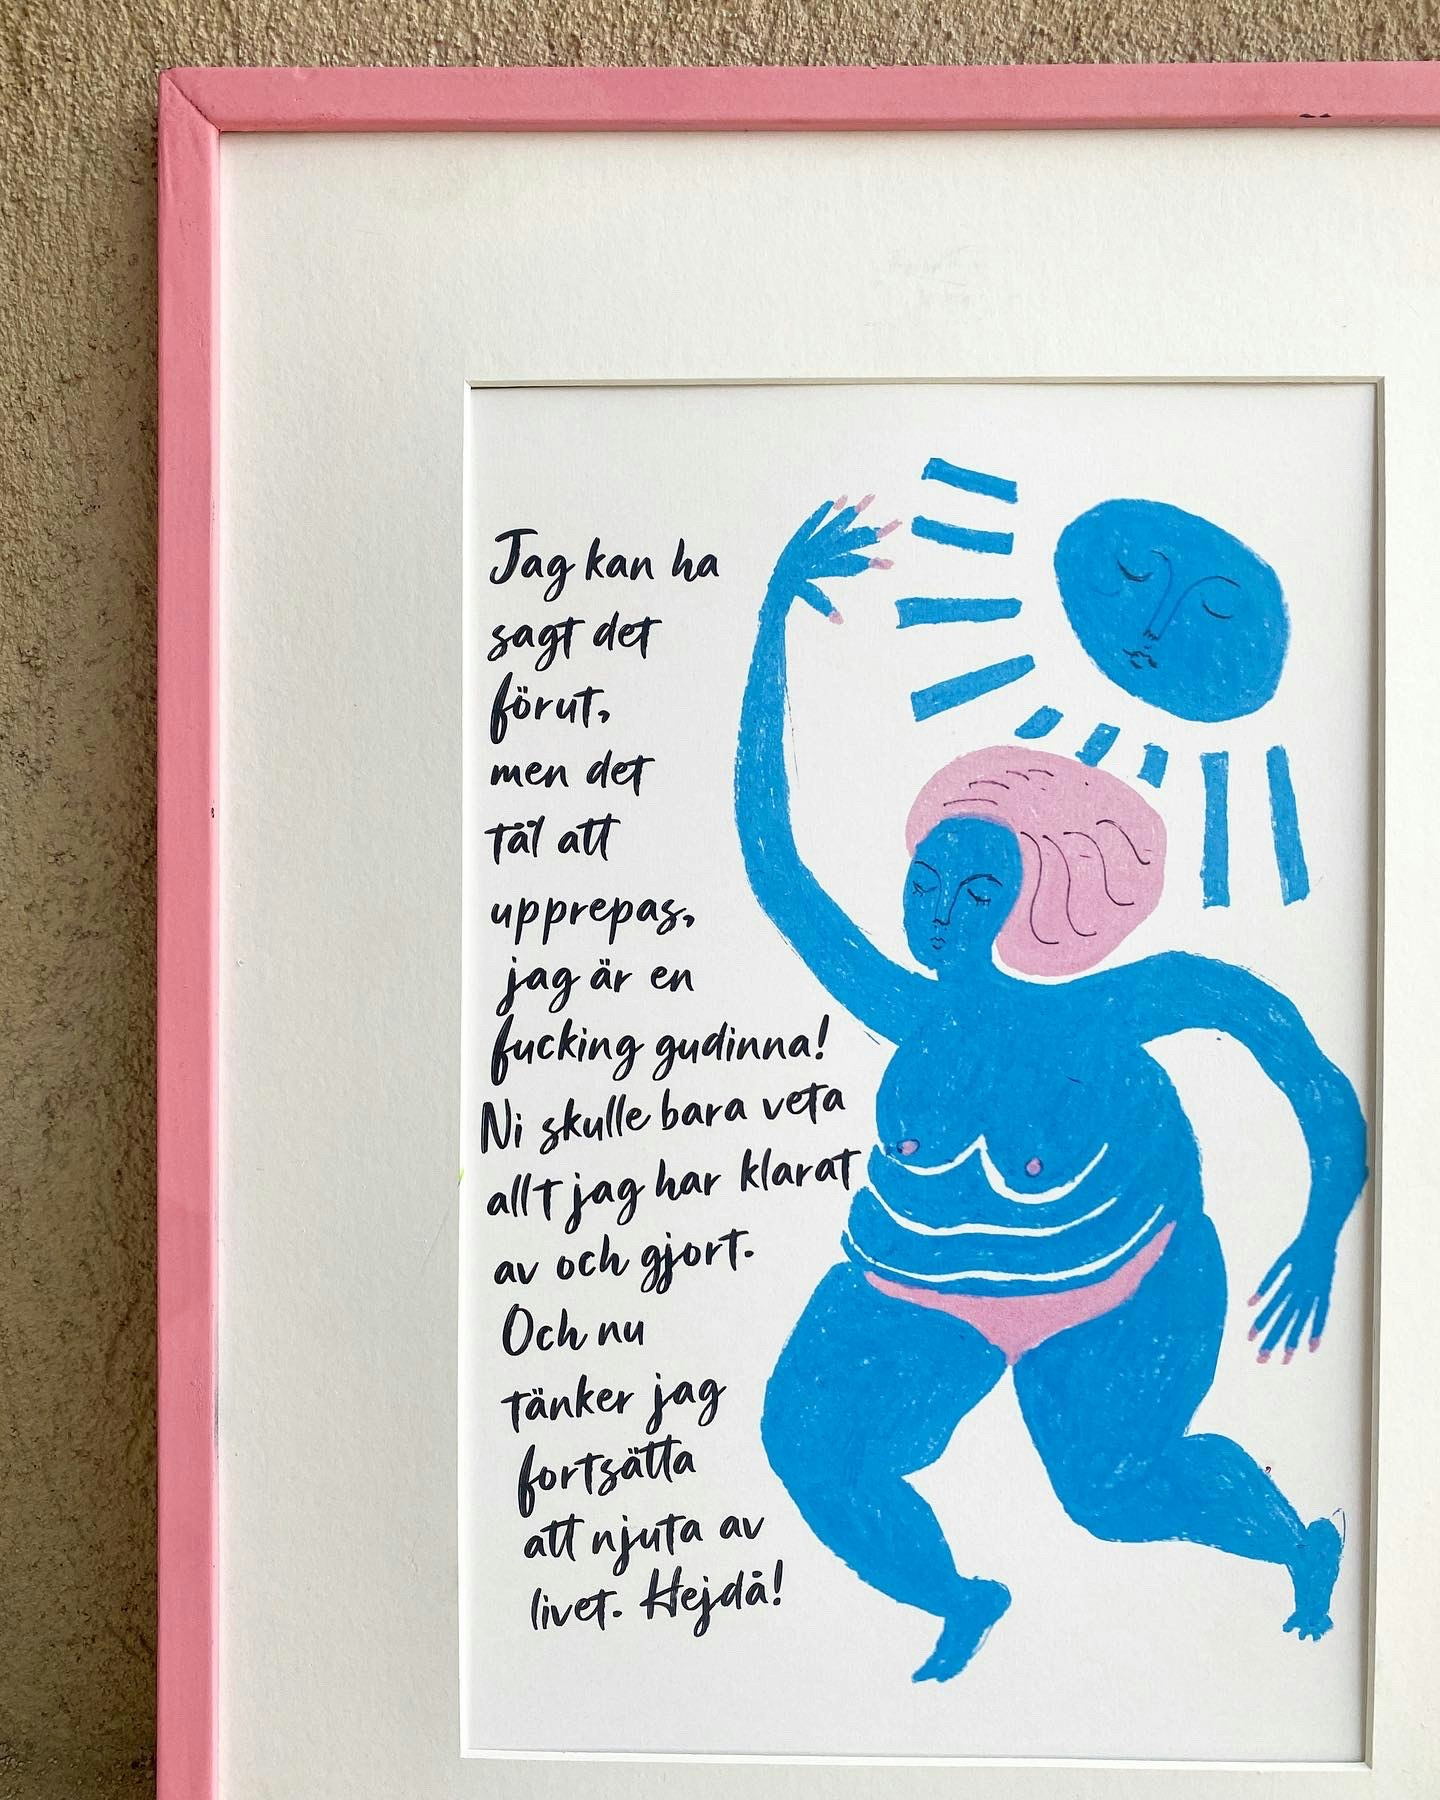 Jag kan ha
sagt det
förut,
men det
tål att
upprepas,
jag är en
fucking gudinna!
Ni skulle bara veta
allt jag har klarat
av och gjort.
Och nu
tänker jag
fortsätta
att njuta av
livet. Hejdå!